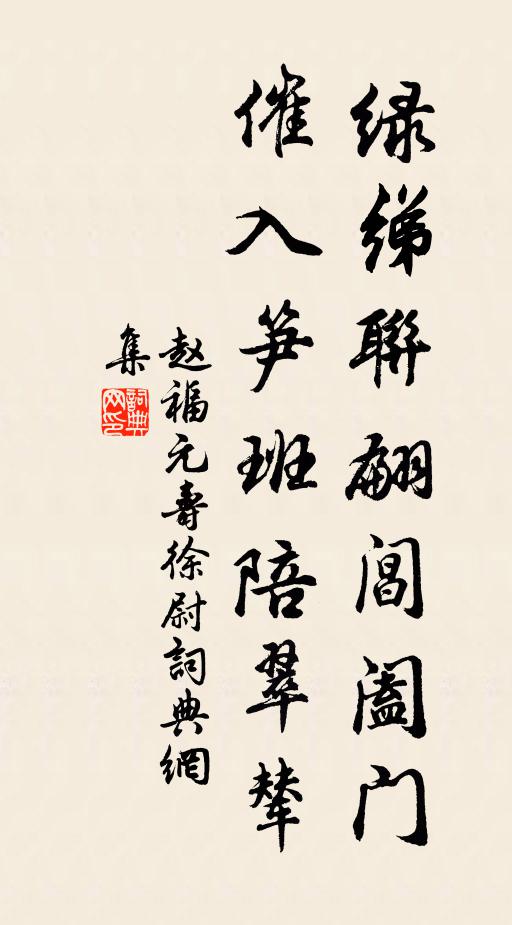 绿绨联翩阊阖门
催入笋班陪翠辇
赵福元寿徐尉詞典網
集
詞典网印